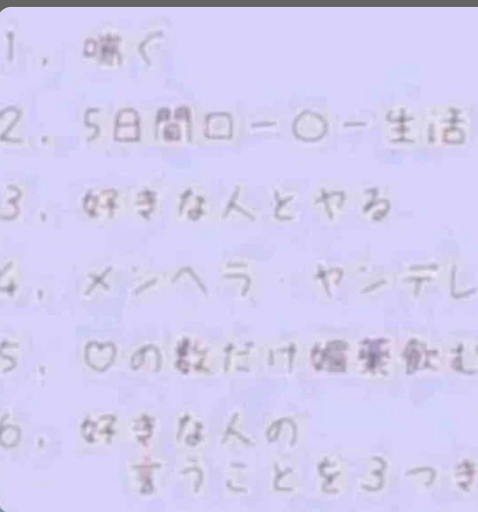 1. 喘ぐ
2. 5日間ロー〇ー生活
3. 好きな人とヤる
4. メンヘラ・ヤンデレ
5. ♡の数だけ媚薬飲む
6. 好きな人の
言うことを3つき